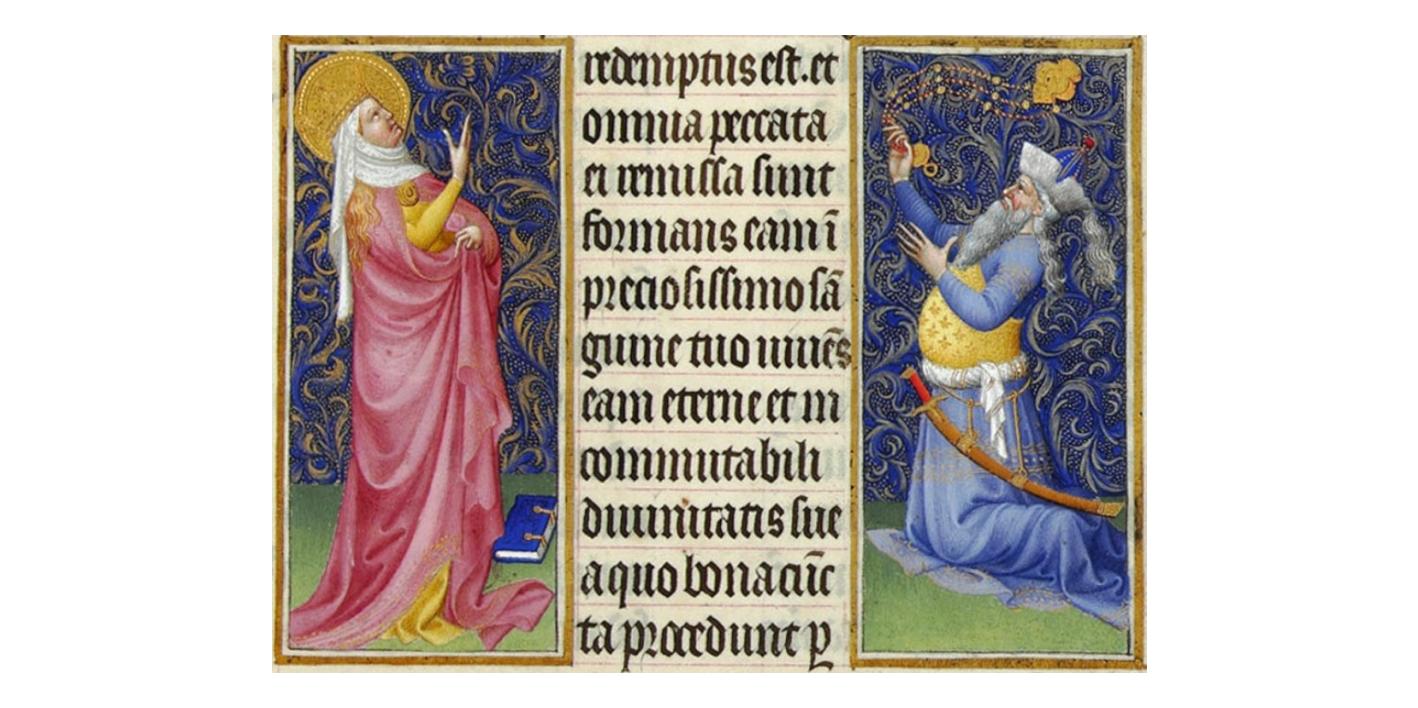 redemptus est. et
omnia peccata
ei remissa sunt
formans eam ī
preciosissimo sā
guine tuo uniēs
eam eterne et in
commutabili
diuinitatis sue
a quo bona cūc
ta procedunt p̱